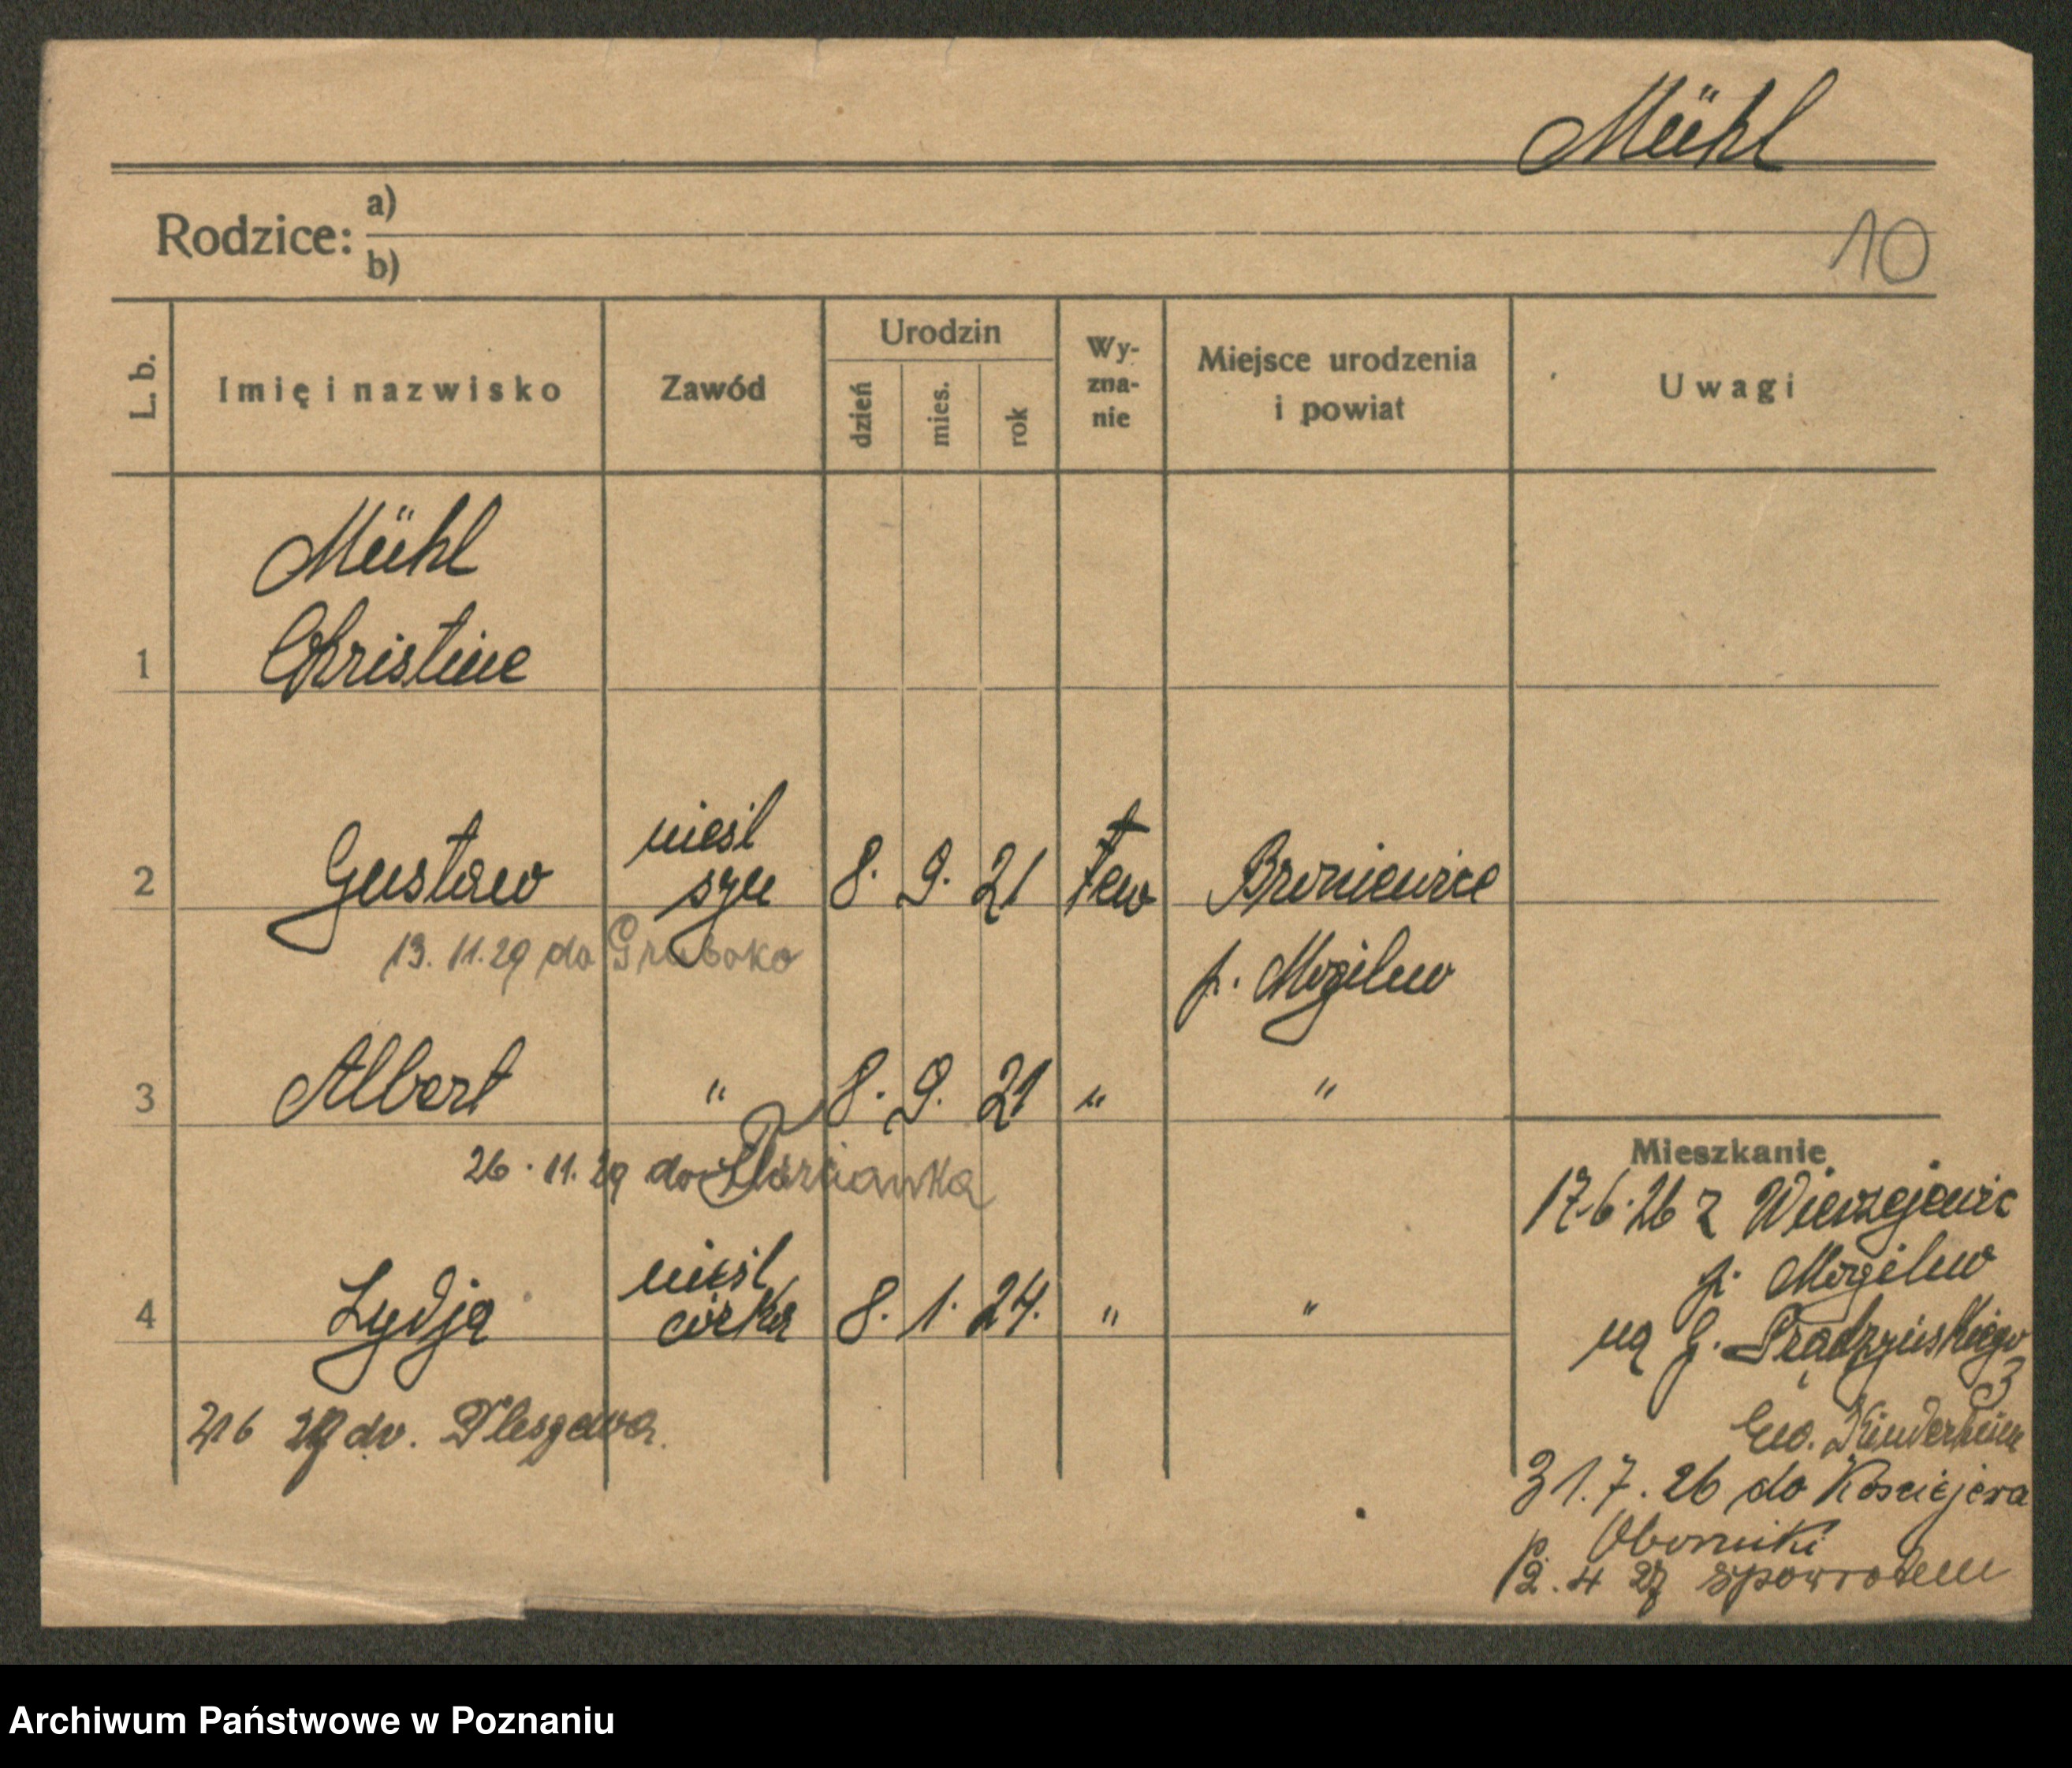 Mühl
Rodzice: a)
b)
10
L. b. Imię i nazwisko Zawód Urodzin dzień mies. rok Wy-zna-nie Miejsce urodzenia i powiat Uwagi
Mühl
1 Christine
nieśl
2 Gustaw syn 8. 9. 21 ew Broniewice
13.11.29 do
p. Mogilno
3 Albert " 8. 9. 21 " "
26.11.29 do
nieśl
4 Lydja córka 8. 1. 24. " "
do Pleszewa.
Mieszkanie
17.6.26 z Wierzejewic
p. Mogilno
na G. Prądzyńskiego
3
Ew. Kinderheim
31.7.26 do
p. Oborniki
12.4 27 spowrotem
Archiwum Państwowe w Poznaniu